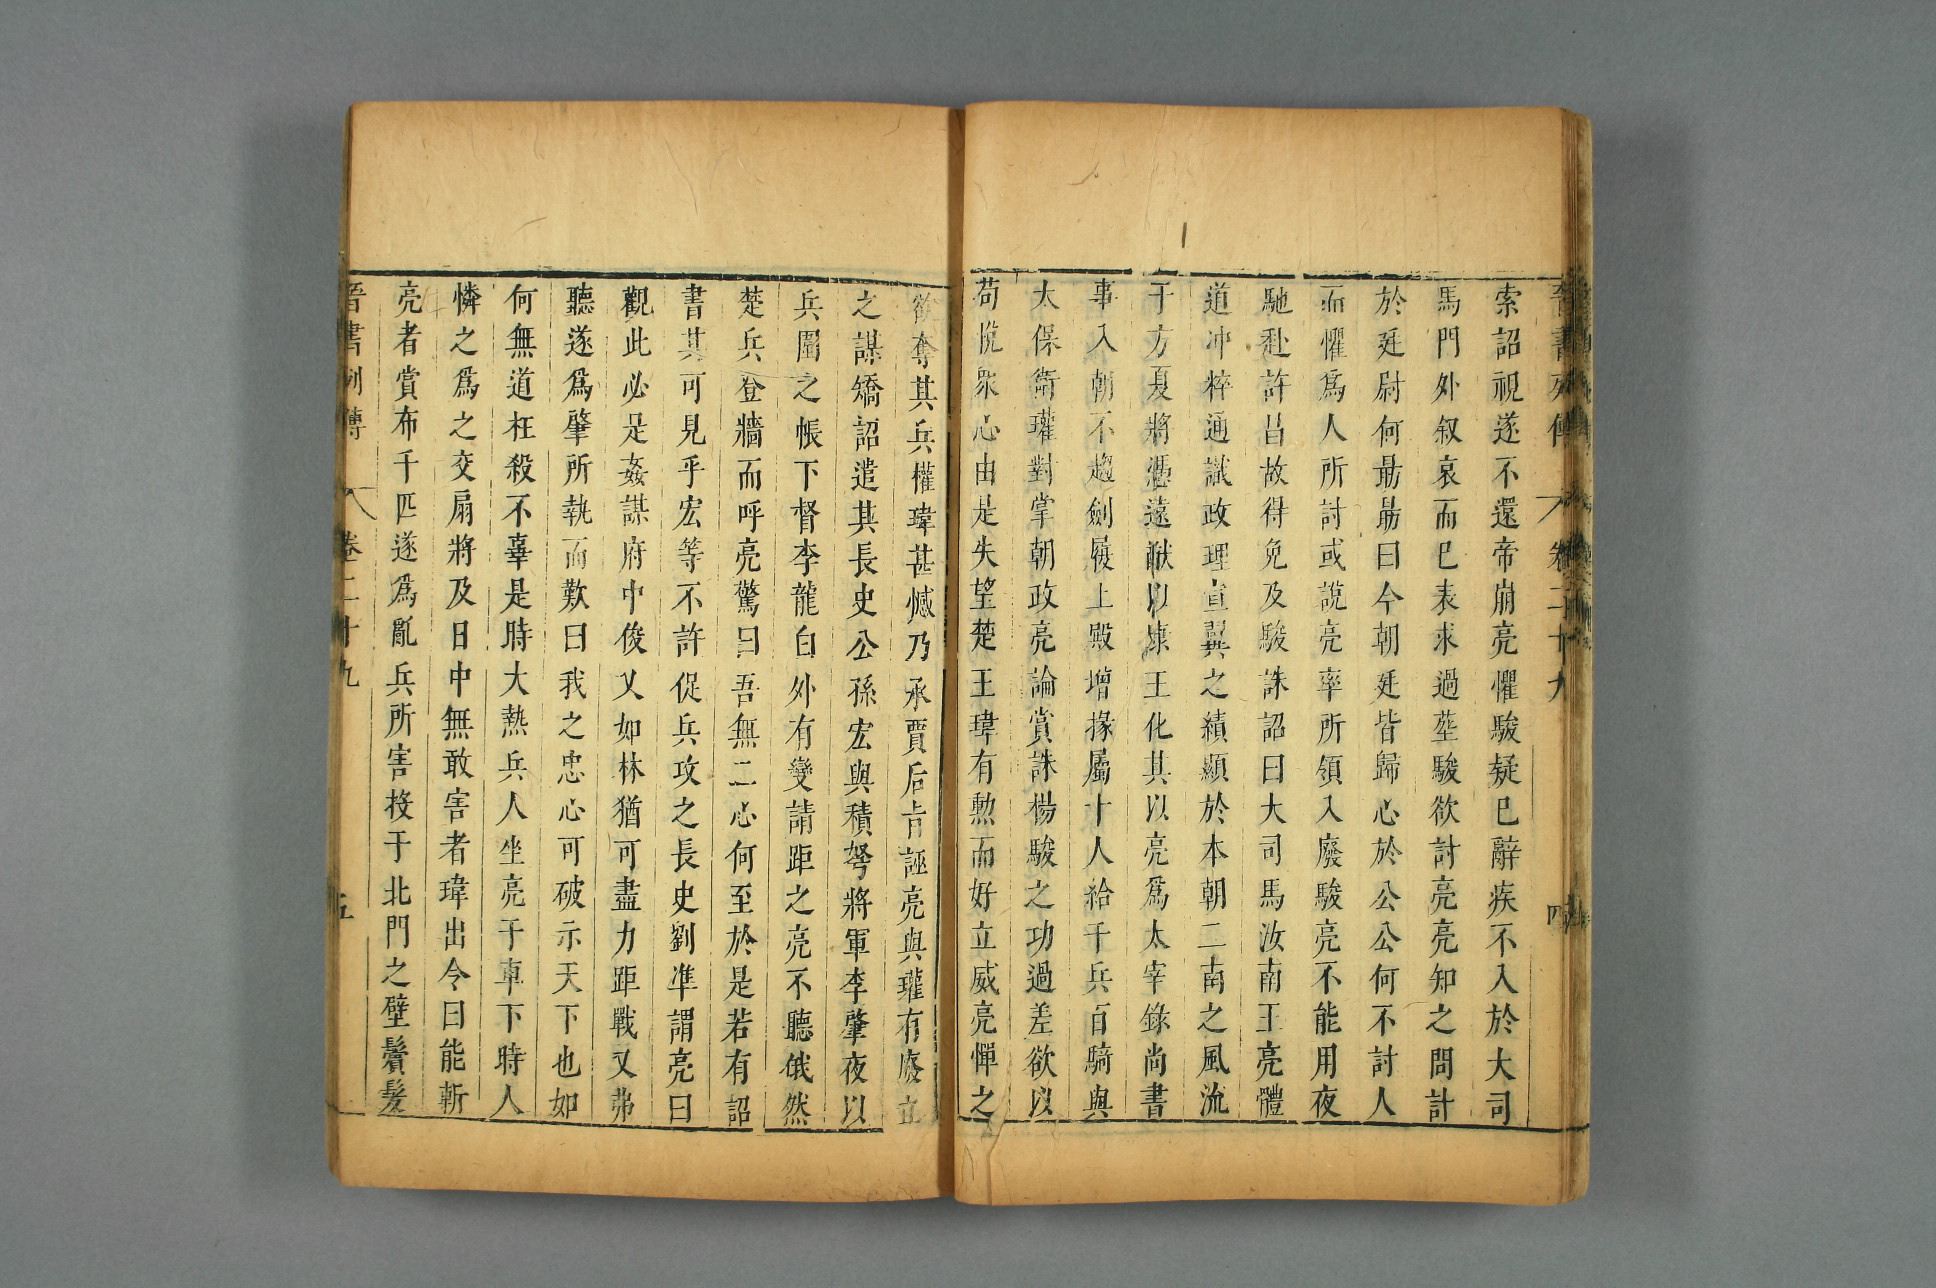 晉書列傳 卷二十九 四
索詔視遂不還帝崩亮懼駿疑巳辭疾不入於大司
馬門外叙哀而巳表求過塟駿欲討亮亮知之問計
於廷尉何朂朂曰今朝廷皆歸心於公公何不討人
而懼爲人所討或說亮率所領入廢駿亮不能用夜
馳赴許昌故得免及駿誅詔曰大司馬汝南王亮體
道冲粹通識政理宣翼之績顯於本朝二南之風流
于方夏將憑遠猷以康王化其以亮爲太宰錄尚書
事入朝不趨劍履上殿增掾屬十人給千兵百騎與
太保衛瓘對掌朝政亮論賞誅楊駿之功過差欲以
苟悅衆心由是失望楚王瑋有勲而好立威亮憚之
欲奪其兵權瑋甚憾乃承賈后旨誣亮與瓘有廢立
之謀矯詔遣其長史公孫宏與積弩將軍李肇夜以
兵圍之帳下督李龍白外有變請距之亮不聽俄然
楚兵登牆而呼亮驚曰吾無二心何至於是若有詔
書其可見乎宏等不許促兵攻之長史劉準謂亮曰
觀此必是姦謀府中俊乂如林猶可盡力距戰又弗
聽遂爲肇所執而歎曰我之忠心可破示天下也如
何無道枉殺不辜是時大熱兵人坐亮于車下時人
憐之爲之交扇將及日中無敢害者瑋出令曰能斬
亮者賞布千匹遂爲亂兵所害投于北門之壁鬢髮
晉書列傳 卷二十九 五